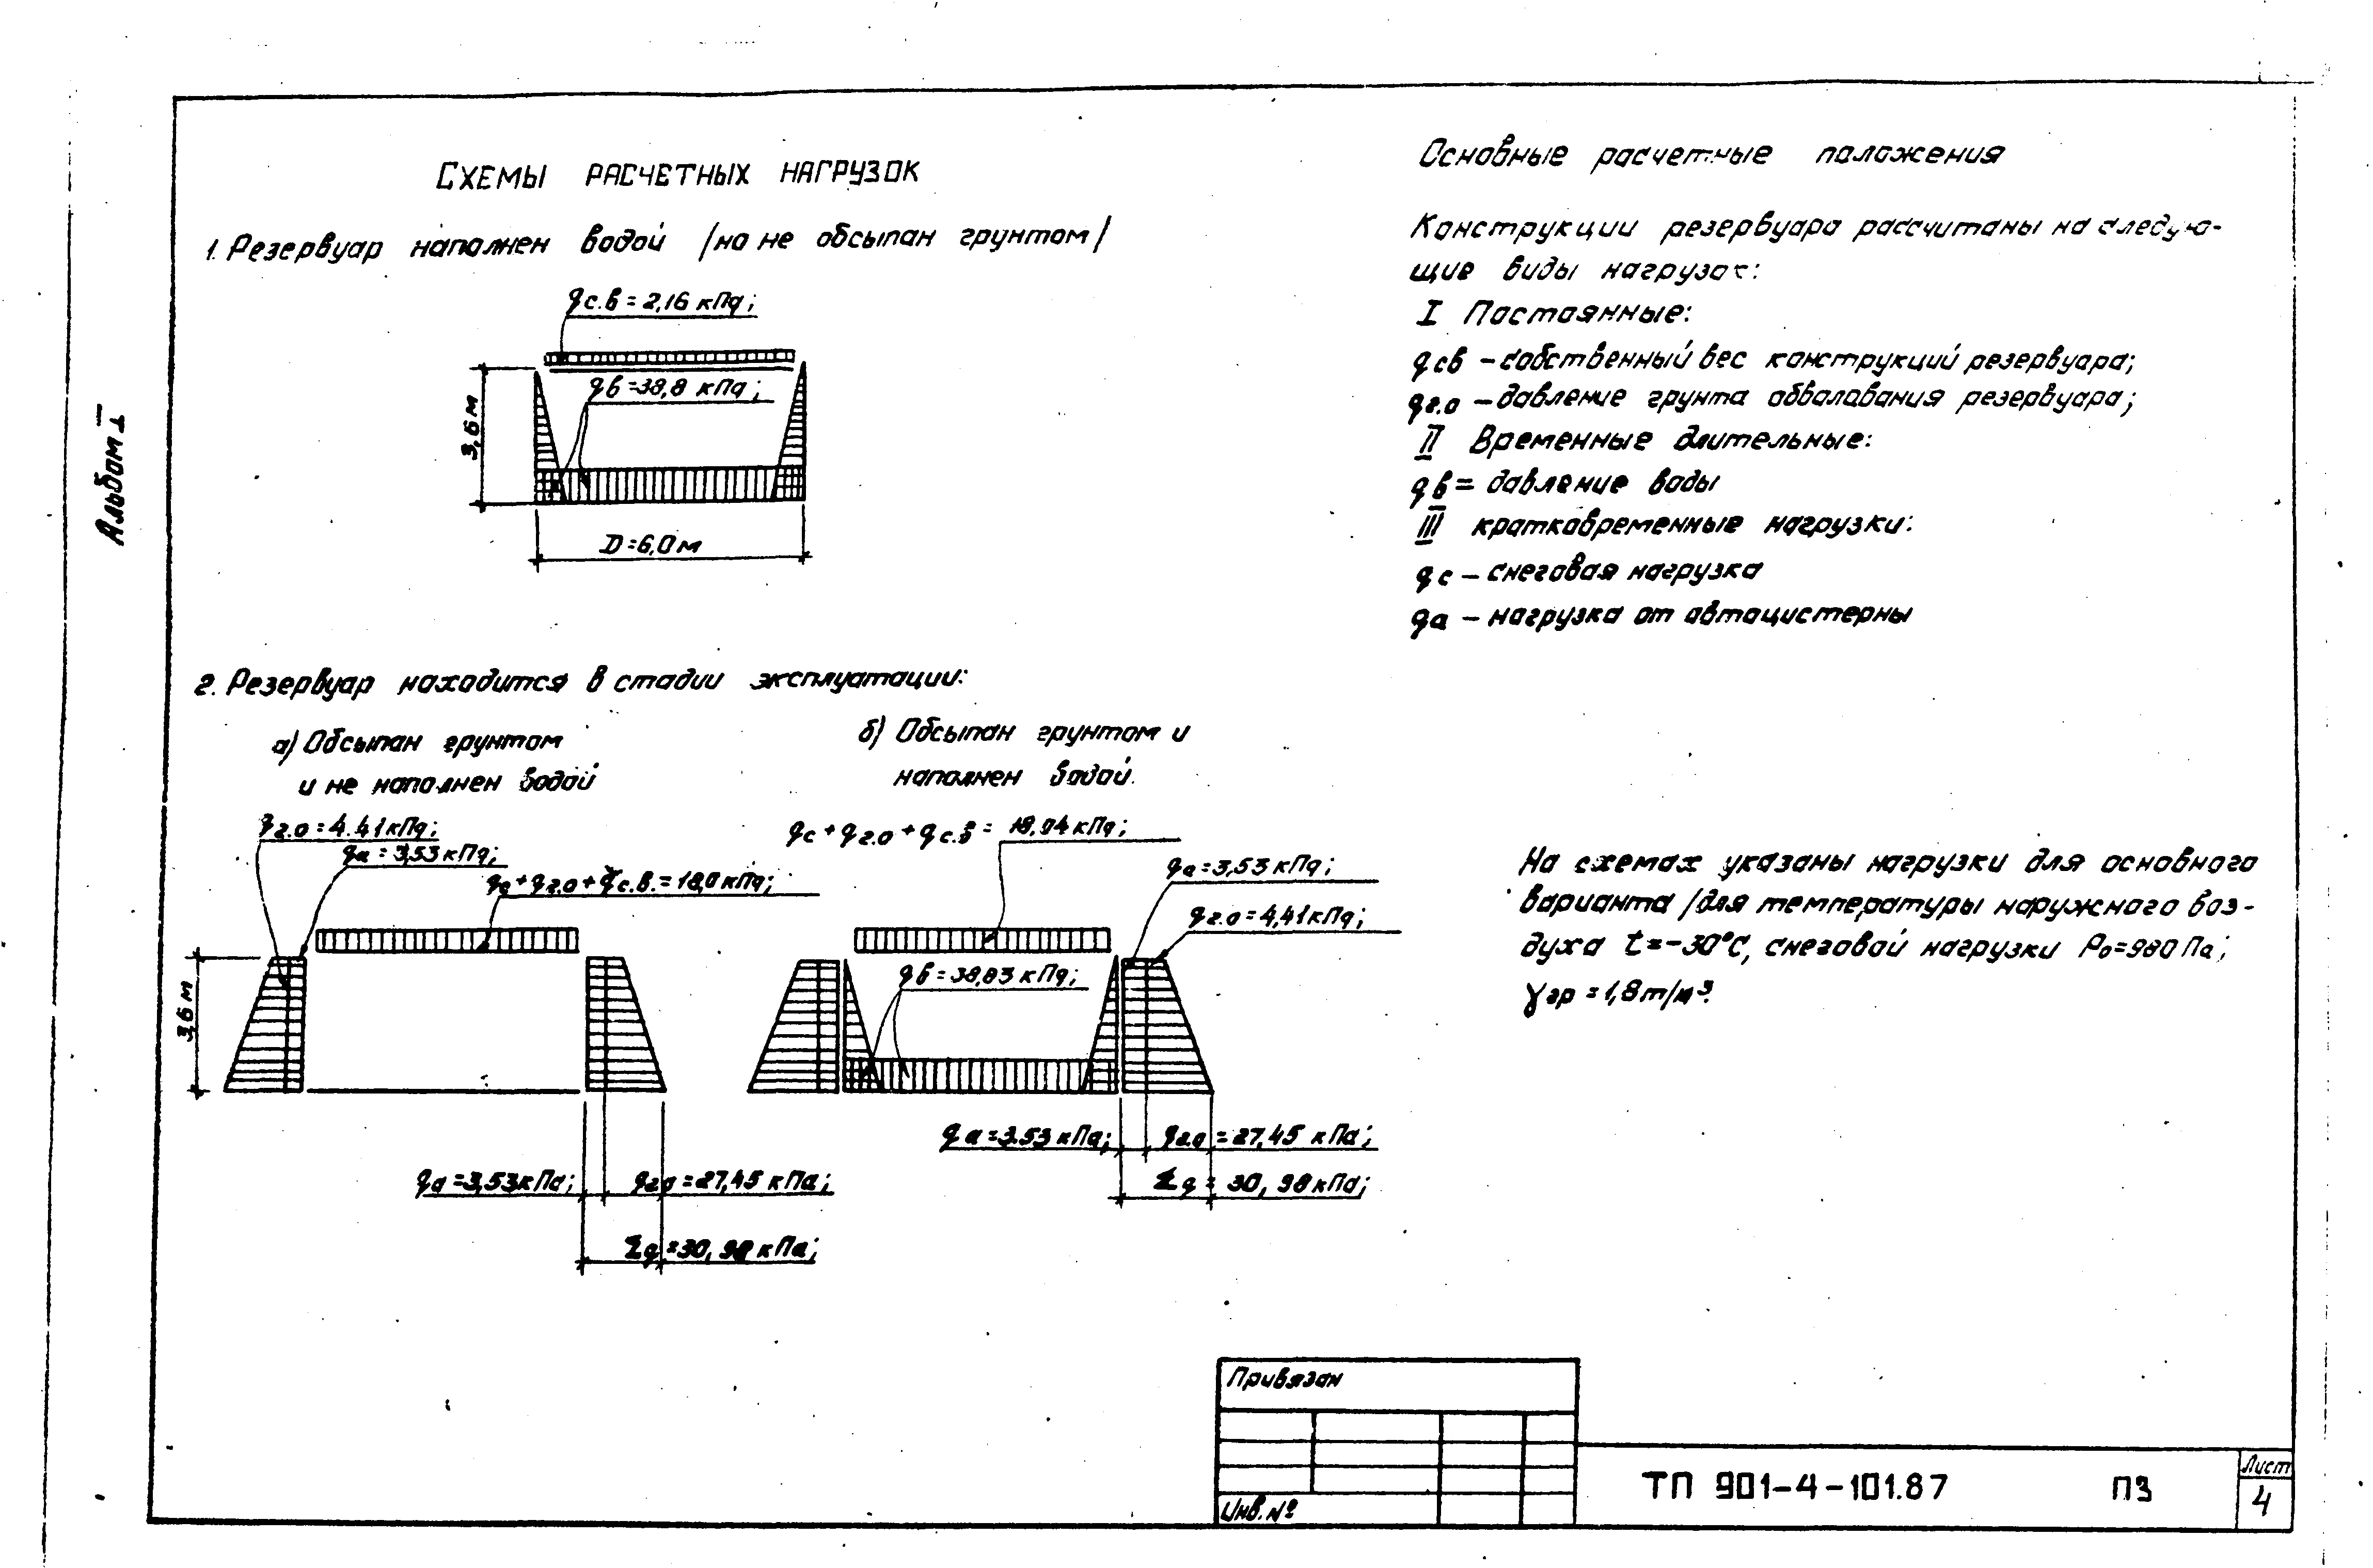 Альбом I
СХЕМЫ РАСЧЕТНЫХ НАГРУЗОК
1. Резервуар наполнен водой /но не обсыпан грунтом/
qс.в = 2,16 кПа;
qв = 38,8 кПа;
3,6 м
D = 6,0 м
2. Резервуар находится в стадии эксплуатации:
а) Обсыпан грунтом
и не наполнен водой
qг.о = 4.41 кПа;
qа = 3,53 кПа;
qс + qг.о + qс.в. = 18,0 кПа;
3,6 м
qа = 3,53 кПа;
qг.о = 27,45 кПа;
Σq = 30,98 кПа;
б) Обсыпан грунтом и
наполнен водой.
qс + qг.о + qс.в = 18,04 кПа;
qа = 3,53 кПа;
qг.о = 4,41 кПа;
qв = 38,83 кПа;
qа = 3.53 кПа;
qг.о = 27,45 кПа;
Σq = 30,98 кПа;
Основные расчетные положения
Конструкции резервуара рассчитаны на следую-
щие виды нагрузок:
I Постоянные:
qсв – собственный вес конструкций резервуара;
qг.о – давление грунта обвалования резервуара;
II Временные длительные:
qв = давление воды
III кратковременные нагрузки:
qс – снеговая нагрузка
qа – нагрузка от автоцистерны
На схемах указаны нагрузки для основного
варианта /для температуры наружного воз-
духа t = -30°C, снеговой нагрузки Po = 980 Па;
γгр = 1,8 т/м³.
Привязан
Инв. №
ТП 901-4-101.87 ПЗ
Лист
4